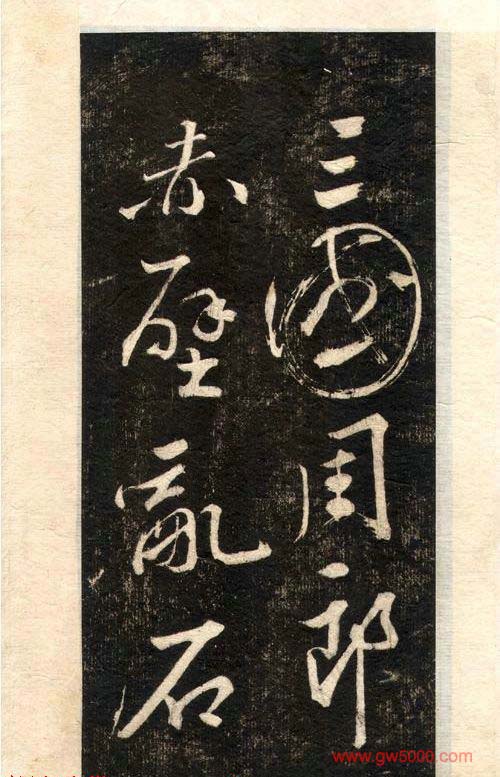 三國周郎
赤壁亂石
www.gw5000.com